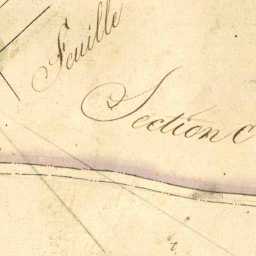 Feuille
Section C